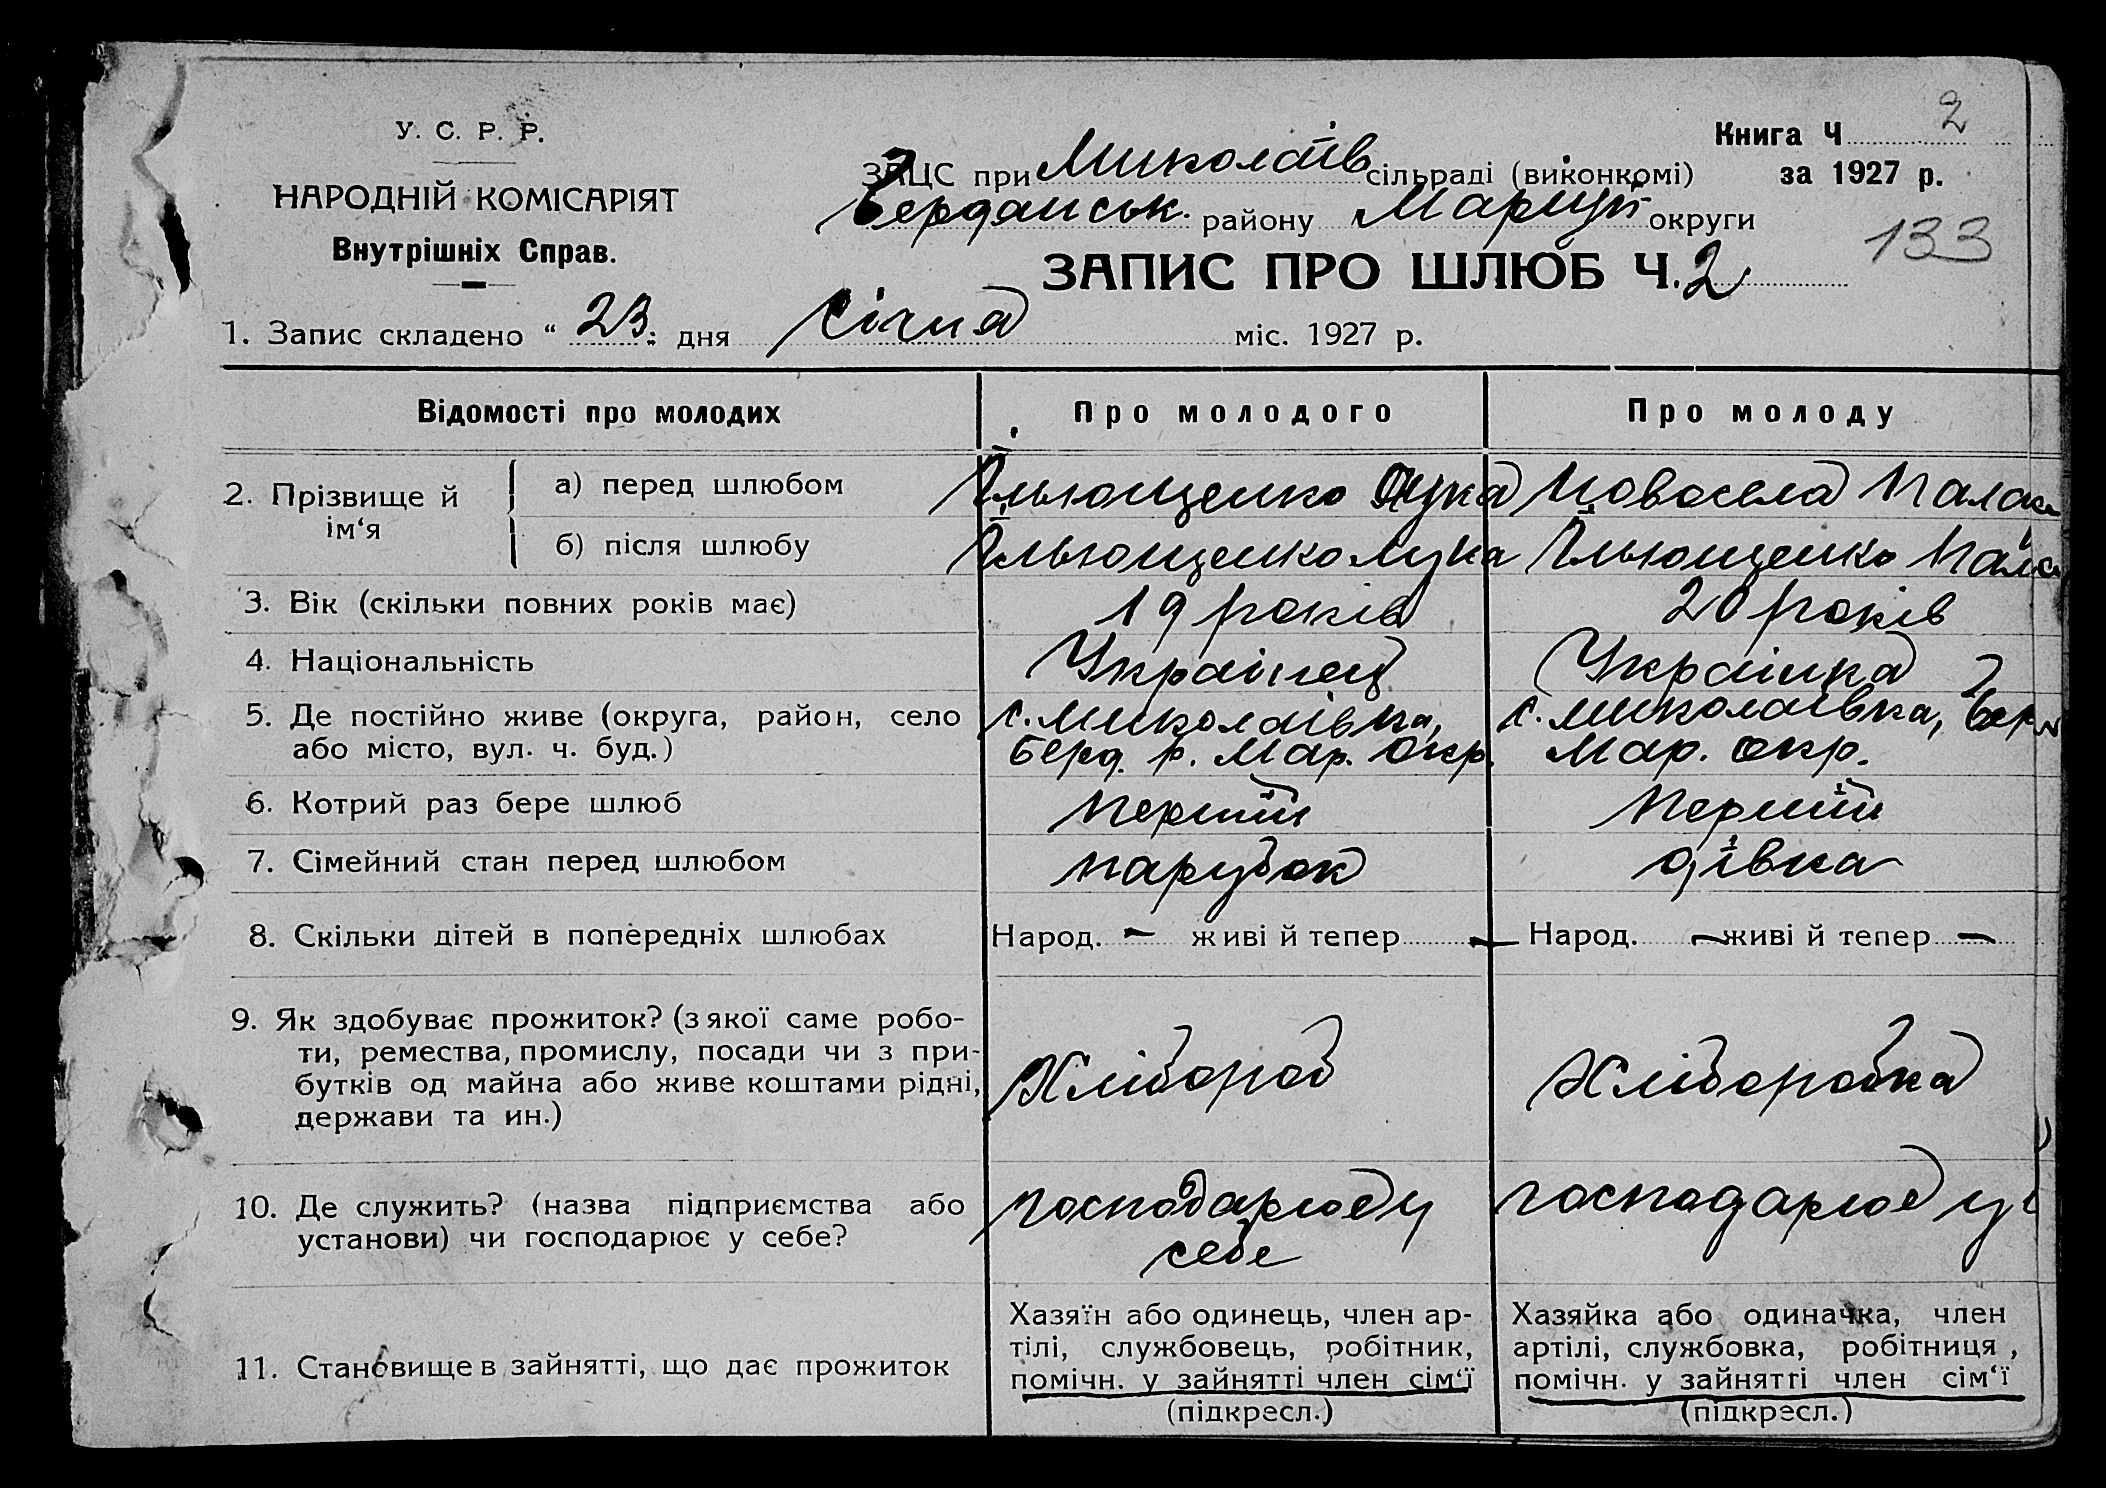 У. С. Р. Р.
НАРОДНІЙ КОМІСАРІЯТ
Внутрішніх Справ.
Книга Ч 2
за 1927 р.
133
ЗАЦС при Миколаїв сільраді (виконкомі)
Бердянськ. району Маріуп округи
ЗАПИС ПРО ШЛЮБ Ч. 2
1. Запис складено “ 23 : дня Січня міс. 1927 р.
Відомості про молодих Про молодого Про молоду
2. Прізвище й ім‘я
а) перед шлюбом Ільющенко Лука Новосела Палаж
б) після шлюбу Ільющенко Лука Ільющенко Пала
3. Вік (скільки повних років має) 19 років 20 років
4. Національність Українец Українка
5. Де постійно живе (округа, район, село с. Миколаівка, с. Миколаівка, Бер
або місто, вул. ч. буд.) Берд. р. Мар. Окр. Мар. окр.
6. Котрий раз бере шлюб Перший Перший
7. Сімейний стан перед шлюбом парубок дівка
8. Скільки дітей в попередніх шлюбах Народ. — живі й тепер — Народ. — живі й тепер —
9. Як здобуває прожиток? (з якої саме робо-
ти, ремества, промислу, посади чи з при-
бутків од майна або живе коштами рідні,
держави та ин.)
Хлібороб Хліборобка
10. Де служить? (назва підприємства або
установи) чи господарює у себе?
господарює у
себе
господарює у
11. Становище в зайнятті, що дає прожиток
Хазяїн або одинець, член ар-
тілі, службовець, робітник,
помічн. у зайнятті член сім‘ї
(підкресл.)
Хазяйка або одиначка, член
артілі, службовка, робітниця,
помічн. у зайнятті член сім‘ї
(підкресл.)